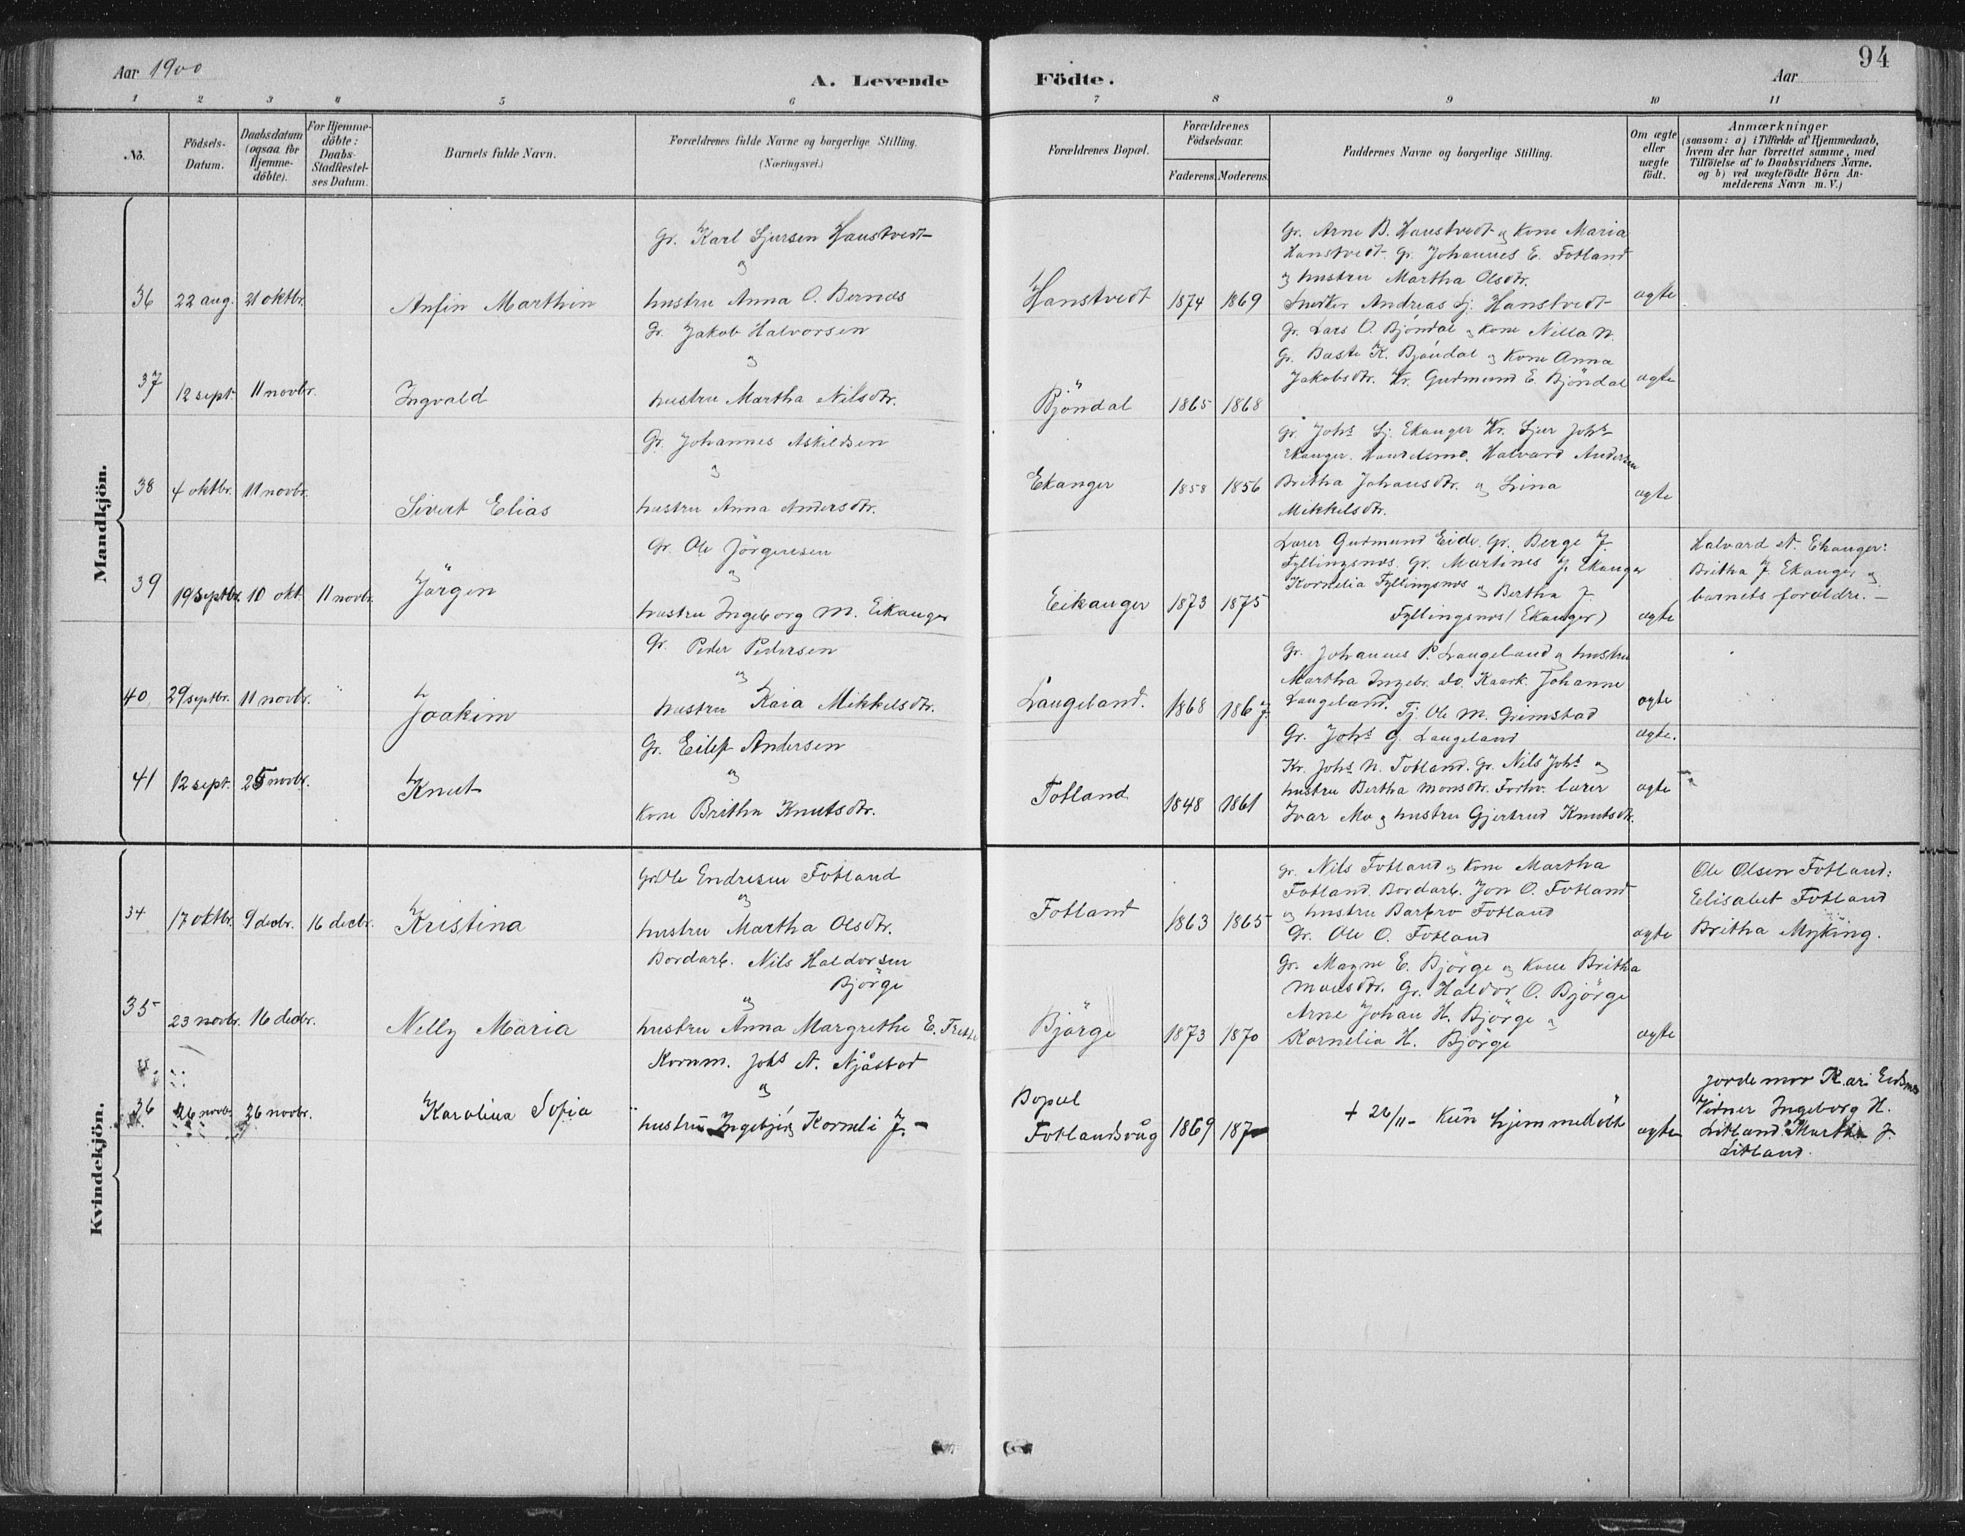 94
Aar 1900
A. Levende
Födte.
Aar
1 2 3 4 5 6 7 8 9 10 11
No.
Födsels-
Datum.
Daabsdatum
(ogsaa for
Hjemme-
döbte).
For Hjemme-
döbte:
Daabs-
Stadfæstel-
ses Datum.
Barnets fulde Navn.
Forældrenes fulde Navne og borgerlige Stilling.
(Næringsvei.)
Forældrenes Bopæl.
Forældrenes
Födselsaar.
Faderens. Moderens.
Faddernes Navne og borgerlige Stilling.
Om ægte
eller
uægte
födt.
Anmærkninger
(saasom: a) i Tilfælde af Hjemmedaab,
hvem der har forrettet samme, med
Tilföielse af to Daabsvidners Navne,
og b) ved uægtefödte Börn An-
melderens Navn m. V.)
Mandkjön.
36 22 aug. 21 oktbr. Anfin Marthin
Gr. Karl Sjursen Hanstvedt
og
hustru Anna O. Bernæs
Hanstvedt 1874 1869
Gr. Arne B. Hanstvedt og kone Maria
Hanstvedt. Gr. Johannes E. Fotland
og hustru Martha Olsdtr.
Snedker Andreas Sj. Hanstvedt
ægte
37 12 sept. 11 novbr. Ingvald
Gr. Jakob Halvorsen
og
hustru Martha Nilsdtr.
Bjöndal 1865 1868
Gr. Lars O. Bjöndal og kone Nilla N.
Gr. Baste K. Bjöndal og kone Anna
Jakobsdtr. Kr. Gudmund E. Bjöndal
ægte
38 4 oktbr. 11 novbr. Sivert Elias
Gr. Johannes Askildsen
og
hustru Anna Andersdtr.
Ekanger 1858 1856
Gr. Johs Sj. Ekanger Kr. Sjur Johs
Ekanger. Handelsmd. Halvard Andersen
Britha Johansdtr. og Lina
Mikkelsdtr.
ægte
39 19 septbr. 10 okt. 11 novbr. Jörgen
Gr. Ole Jörgensen
og
hustru Ingeborg M. Eikanger
Eikanger 1873 1875
Lærer Gudmund Eide. Gr. Berge J.
Fyllingsnes. Gr. Martines J. Ekanger
Kornelia Fyllingsnes og Bertha J.
Fyllingsnes (Ekanger)
ægte
Halvard A. Ekanger:
Britha J. Ekanger og
barnets forældre. –
40 29 septbr. 11 novbr. Joakim
Gr. Peder Pedersen
og
hustru Kaia Mikkelsdtr.
Langeland. 1868 1867
Gr. Johannes P. Langeland og hustru
Martha Ingebr. do. Kaark. Johanne
Langeland. Tj. Ole M. Grimstad
Gr. Johs G. Langeland
ægte
ægte.
41 12 sept. 25 novbr. Knut
Gr. Eilef Andersen
og
kone Britha Knutsdtr.
Totland 1848 1861
Kr. Johs N. Totland. Gr. Nils Johs og
hustru Bertha Monsdtr. Forhv. lærer
Ivar Mo og hustru Gjertrud Knutsdtr.
ægte
Kvindekjön.
34 17 oktbr. 9 decbr. 16 decbr. Kristina
Gr. Ole Endresen Fotland
og
hustru Martha Olsdtr.
Fotland 1863 1865
Gr. Nils Fotland og kone Martha
Fotland Bordarb. Jon O. Fotland
og hustru Barbro Fotland
Gr. Ole O. Fotland
ægte
Ole Olsen Fotland:
Elisabet Fotland
Britha Myking.
35 23 novbr. 16 decbr. Nelly Maria
Bordarb. Nils Haldorsen
Björge
og
hustru Anna Margrethe E.
Björge 1873 1870
Gr. Magne E. Björge og kone Britha
Monsdtr. Gr. Haldor O. Björge
Arne Johan H. Björge og
Kornelia H. Björge
ægte
36 26 novbr. 26 novbr. Karolina Sofia
Kornm. Johs A. Njåstad
og
hustru Ingebjörg Korneli J. –
Bopæl
Fotlandsvåg 1869 187
+ 26/11 – Kun hjemmedöbt
ægte
Jordemor Kari Eidsnes
Vidner Ingeborg H.
Litland. Martha J.
Litland.